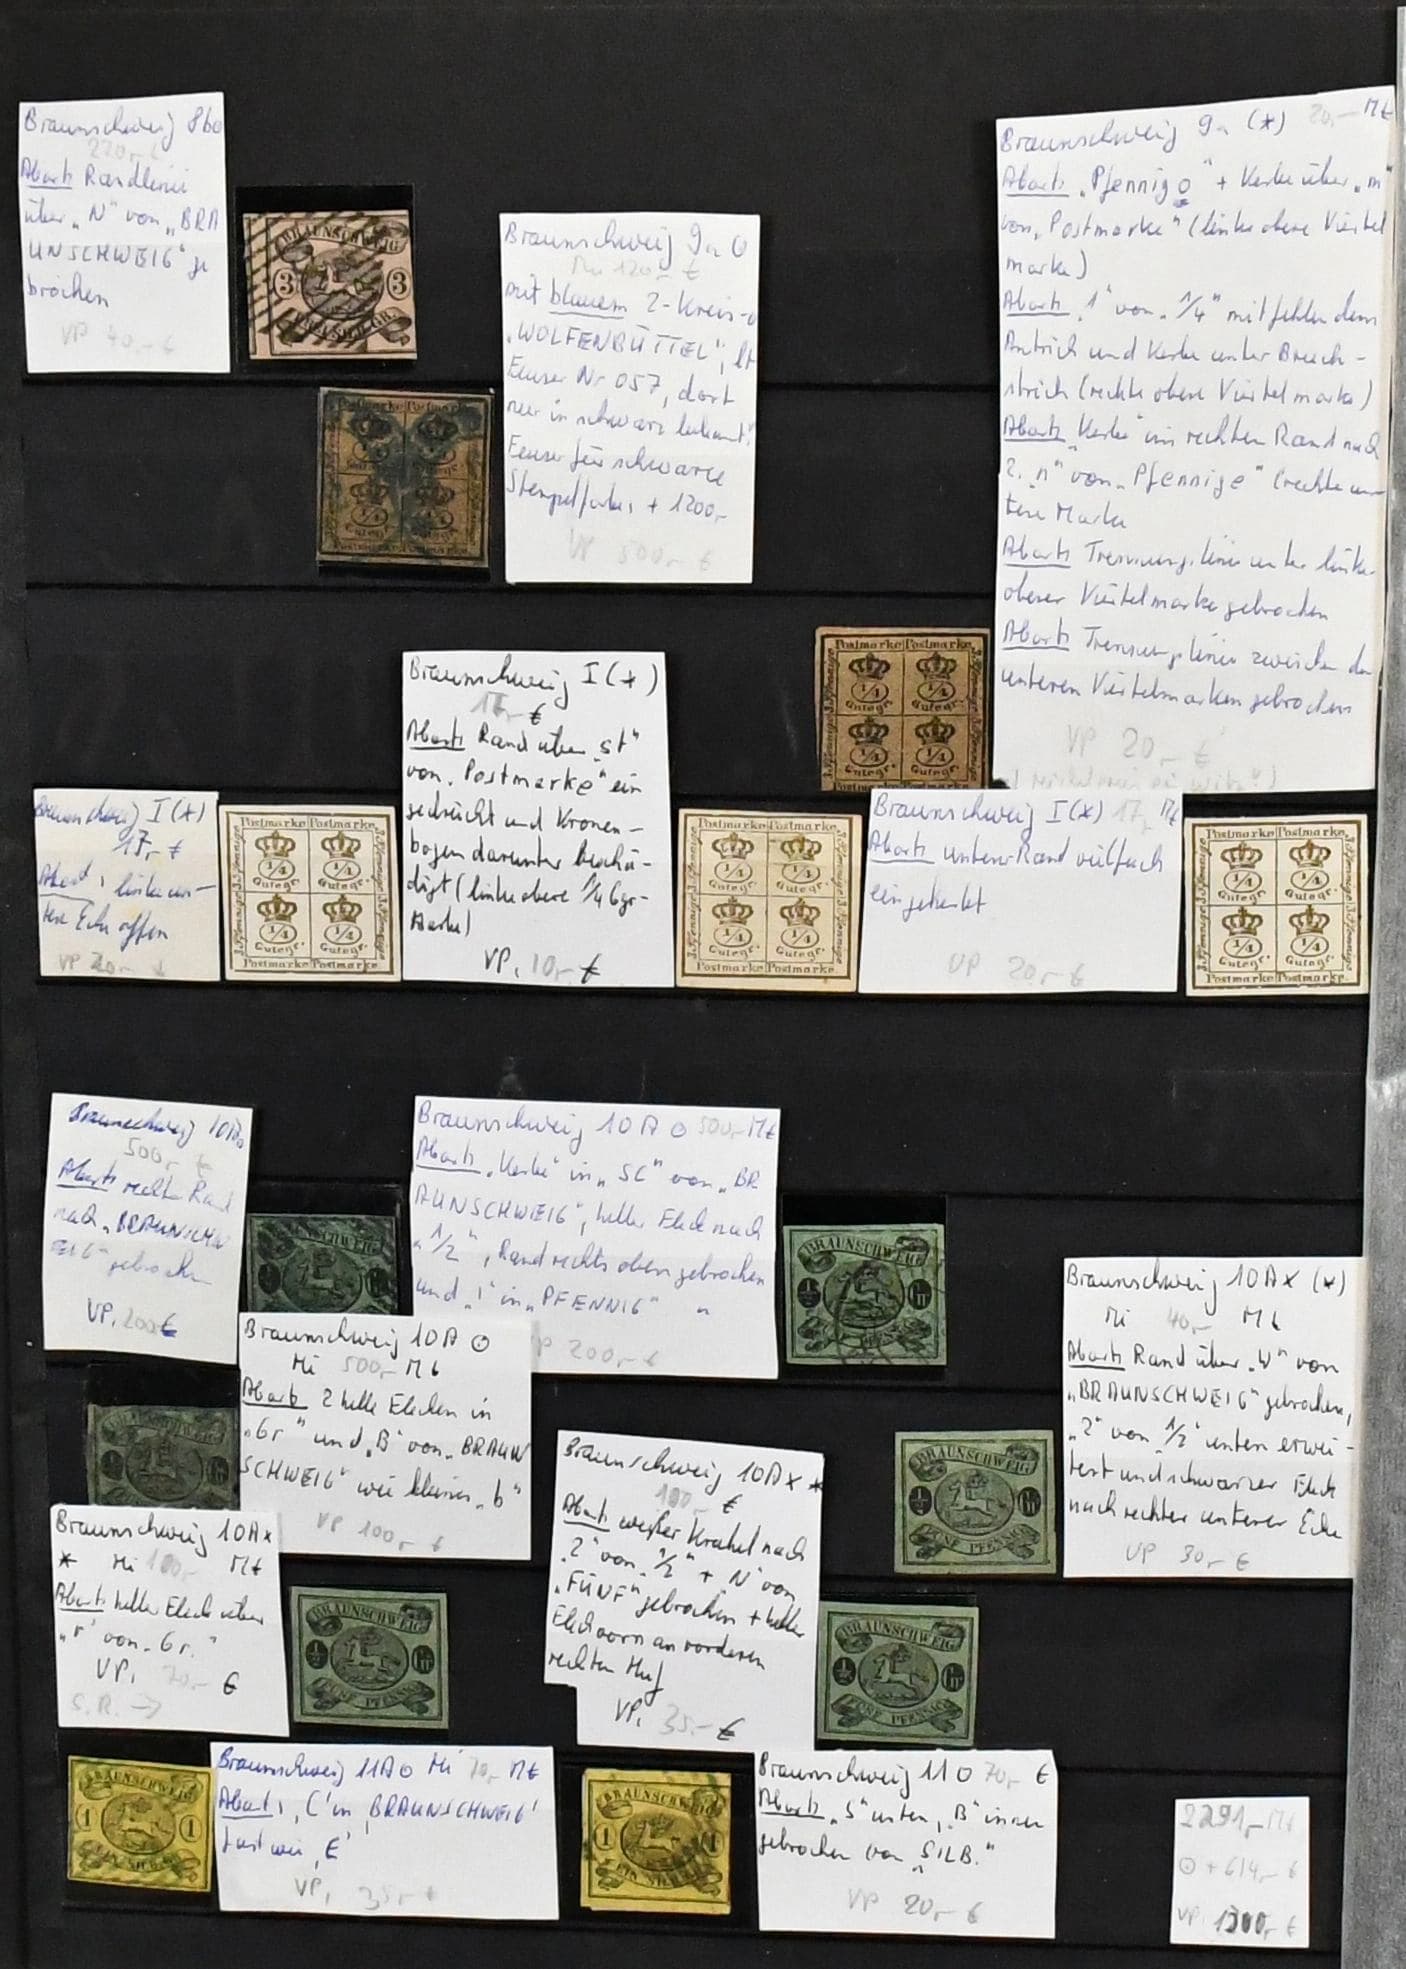 Braunschweig 8b
220,- €
Abart: Randlinie
über „N“ von „BRA
UNSCHWEIG“ ge
brochen
VP 40,- €
BRAUNSCHWEIG
3 3
Braunschweig 9a ⊙
Mi 120,- €
mit blauem 2-Kreis-⊙
„WOLFENBÜTTEL“, lt
Feuser Nr 057, dort
nur in schwarz bekannt.
Feuser für schwarze
Stempelfarbe, + 1200,-
VP 500,- €
Postmarke Postmarke
1/4 1/4
1/4 1/4
Braunschweig 9a (*) 20,- M€
Abart: „Pfennigo“ + Kerbe über „m“
von „Postmarke“ (linke obere Viertel
marke)
Abart: „1“ von „1/4“ mit fehlendem
Anstrich und Kerbe unter Bruch-
strich (rechte obere Viertelmarke)
Abart: „Kerbe“ im rechten Rand nach
2. „n“ von „Pfennige“ (rechte un-
tere Marke
Abart: Trennungslinie unter linker
oberer Viertelmarke gebrochen
Abart: Trennungslinie zwischen den
unteren Viertelmarken gebrochen
VP 20,- €
Postmarke Postmarke
3 Pfennige
1/4 1/4
Gutegr. Gutegr.
1/4 1/4
Gutegr. Gutegr.
Braunschweig I (*)
17,- €
Abart: linke un-
tere Ecke offen
VP 20,- €
Postmarke Postmarke
3 Pfennige 3 Pfennige
1/4 1/4
Gutegr. Gutegr.
1/4 1/4
Gutegr. Gutegr.
Postmarke Postmarke
Braunschweig I (*)
17,- €
Abart: Rand über „st“
von „Postmarke“ ein
gedrückt und Kronen-
bogen darunter beschä-
digt (linke obere 1/4 Ggr-
Marke)
VP, 10,- €
Postmarke Postmarke
3 Pfennige 3 Pfennige
1/4 1/4
Gutegr. Gutegr.
1/4 1/4
Gutegr. Gutegr.
Postmarke Postmarke
Braunschweig I (*) 17,- M€
Abart: unterer Rand vielfach
eingekerbt
VP 20,- €
Postmarke Postmarke
3 Pfennige 3 Pfennige
1/4 1/4
Gutegr. Gutegr.
1/4 1/4
Gutegr. Gutegr.
Postmarke Postmarke
Braunschweig 10A⊙
500,- €
Abart: rechter Rand
nach „BRAUNSCHW
EIG“ gebrochen
VP, 200 €
Braunschweig 10A ⊙ 500,- M€
Abart: „Kerbe“ in „SC“ von „BR
AUNSCHWEIG“, heller Fleck nach
„1/2“, Rand rechts oben gebrochen
und „i“ in „PFENNIG“ “
VP 200,- €
BRAUNSCHWEIG
1/2 Gr
PFENNIG
Braunschweig 10A ⊙
Mi 500,- M€
Abart: 2 helle Flecken in
„Gr“ und „B“ von „BRAUN
SCHWEIG“ wie kleines „b“
VP 100,- €
Braunschweig 10Ax (*)
Mi 40,- M€
Abart: Rand über „W“ von
„BRAUNSCHWEIG“ gebrochen,
„2“ von „1/2“ unten erwei-
tert und schwarzer Fleck
nach rechter unterer Ecke
VP 30,- €
BRAUNSCHWEIG
1/2 Gr
FÜNF PFENNIG
Braunschweig 10Ax
* Mi 100,- M€
Abart: heller Fleck über
„r“ von „Gr.“
VP, 70,- €
S.R. →
BRAUNSCHWEIG
1/2 Gr
FÜNF PFENNIG
Braunschweig 10Ax *
100,- €
Abart: weißer Strahl nach
„2“ von „1/2“ + „N“ von
„FÜNF“ gebrochen + heller
Fleck vorn an vorderem
rechten Huf
VP, 35,- €
BRAUNSCHWEIG
1/2 Gr
FÜNF PFENNIG
BRAUNSCHWEIG
1 1
Braunschweig 11A⊙ Mi 70,- M€
Abart: „C“ in „BRAUNSCHWEIG“
fast wie „E“
VP, 35,- €
BRAUNSCHWEIG
1 1
Braunschweig 11⊙ 70,- €
Abart: „S“ unten, „B“ innen
gebrochen von „SILB.“
VP 20,- €
2291,- M€
⊙ + 614,- €
VP 1300,- €